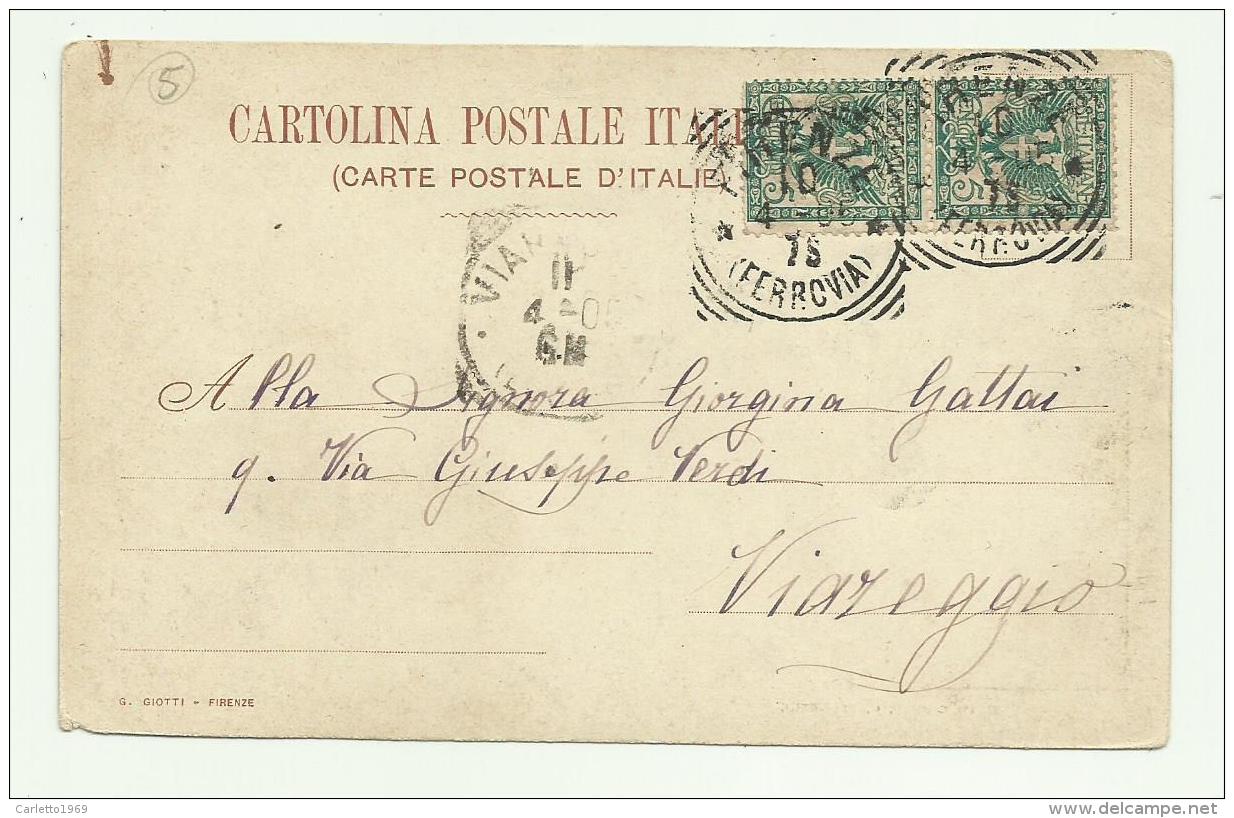 5
CARTOLINA POSTALE ITAL
(CARTE POSTALE D'ITALIE
FIRENZE
10
4
75
(FERROVIA)
10
4
75
FERROVIA
11
4 - 05
6.M
Alla Signora Giorgina Gattai
9. Via Giuseppe Verdi
Viareggio
G. GIOTTI - FIRENZE
Carletto1969
delcampe.net